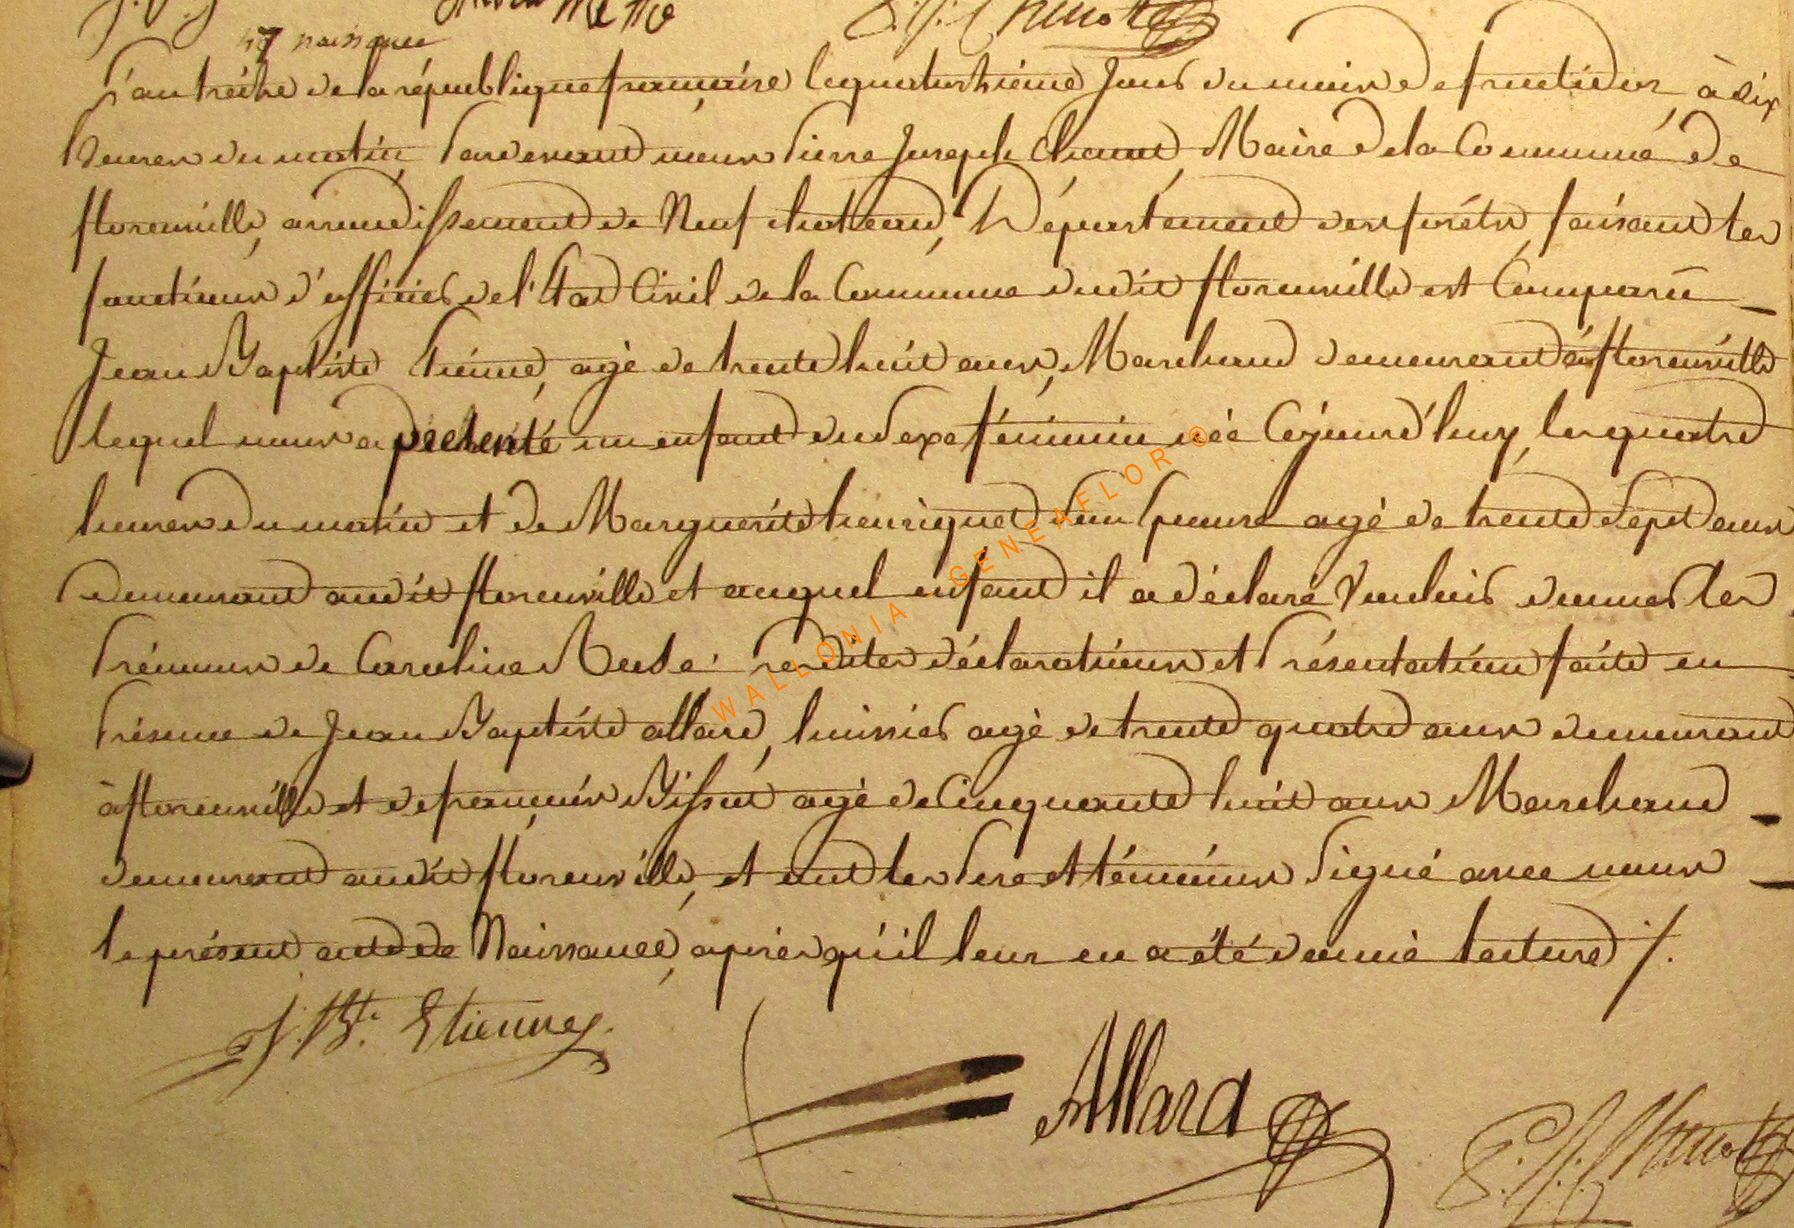 47 naissance
L'an treize de la république française le quatorzième jour du mois de fructidor, à dix
heures du matin, Pardevant nous Pierre Joseph Maire de la Commune de
florenville, arrondissement de Neufchateau, Département des forêts, faisant les
fonctions d'officier de l'Etat Civil de la Commune dudit florenville est Comparu
Jean Baptiste Etienne, agé de trente huit ans, Marchand demeurant à florenville
lequel nous a présenté un enfant du Sexe féminin née Cejourd'huy, les quatre
heures du matin et de Marguerite henriquet Son épouse agé de trente Sept ans
demeurant audit florenville et auquel enfant il a déclaré Vouloir donner les
Prénoms de Caroline lesdites déclaration et Présentation faite en
Présence de Jean Baptiste allard, huissier agé de trente quatre ans demeurant
à florenville et de françois agé de Cinquante huit ans Marchand
demeurant audit florenville, et ont les Pere et témoins Signé avec nous
le présent acte de Naissance, après qu'il leur en a été donné lecture ./.
J. Bte. Etienne
Allard
WALLONIA GENEAFLOR ©